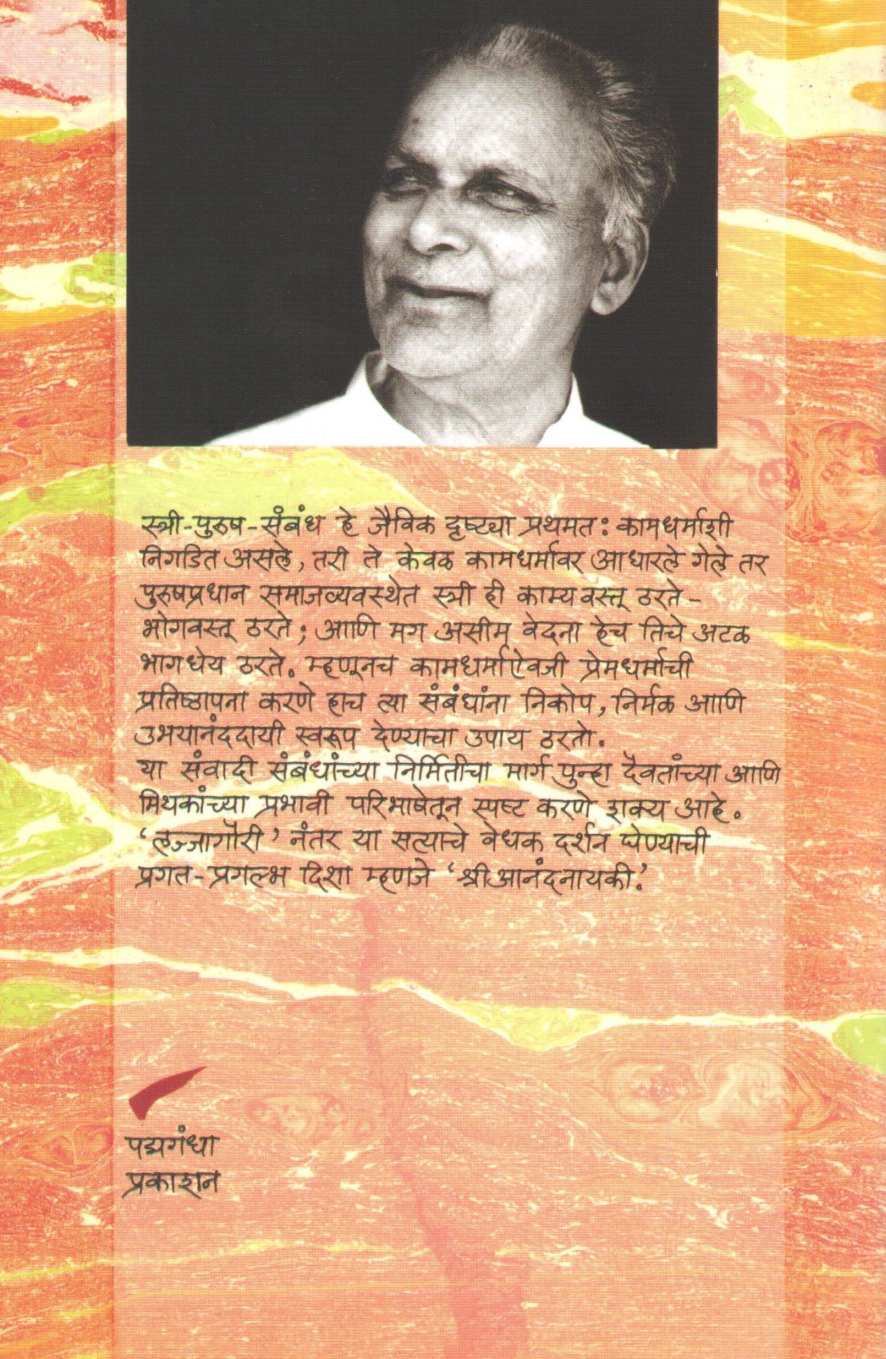 स्त्री-पुरुष-संबंध हे जैविक दृष्ट्या प्रथमतः कामधर्माशी
निगडित असले, तरी ते केवळ कामधर्मावर आधारले गेले तर
पुरुषप्रधान समाजव्यवस्थेत स्त्री ही काम्यवस्तू ठरते -
भोगवस्तू ठरते; आणि मग असीम वेदना हेच तिचे अटळ
भागधेय ठरते. म्हणूनच कामधर्माऐवजी प्रेमधर्माची
प्रतिष्ठापना करणे हाच त्या संबंधांना निकोप, निर्मळ आणि
उभयानंददायी स्वरूप देण्याचा उपाय ठरतो.
या संवादी संबंधांच्या निर्मितीचा मार्ग पुन्हा दैवतांच्या आणि
मिथकांच्या प्रभावी परिभाषेतून स्पष्ट करणे शक्य आहे.
'लज्जागौरी' नंतर या सत्याचे वेधक दर्शन घेण्याची
प्रगत-प्रगल्भ दिशा म्हणजे 'श्रीआनंदनायकी.'
पद्मगंधा
प्रकाशन